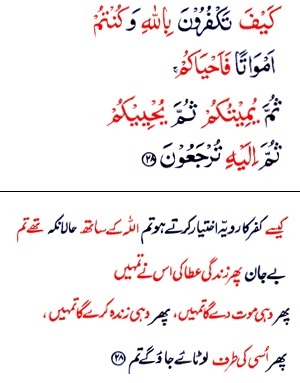 كَيْفَ تَكْفُرُوْنَ بِاللّٰهِ وَكُنْتُمْ
اَمْوَاتًا فَاَحْيَاكُمْ ۚ
ثُمَّ يُمِيْتُكُمْ ثُمَّ يُحْيِيْكُمْ
ثُمَّ اِلَيْهِ تُرْجَعُوْنَ ﴿۲۸﴾
کیسے کفر کا رویّہ اختیار کرتے ہو تم اللہ کے ساتھ حالانکہ تھے تم
بے جان پھر زندگی عطا کی اس نے تمہیں
پھر وہی موت دے گا تمہیں، پھر وہی زندہ کرے گا تمہیں،
پھر اُسی کی طرف لوٹائے جاؤ گے تم ﴿۲۸﴾